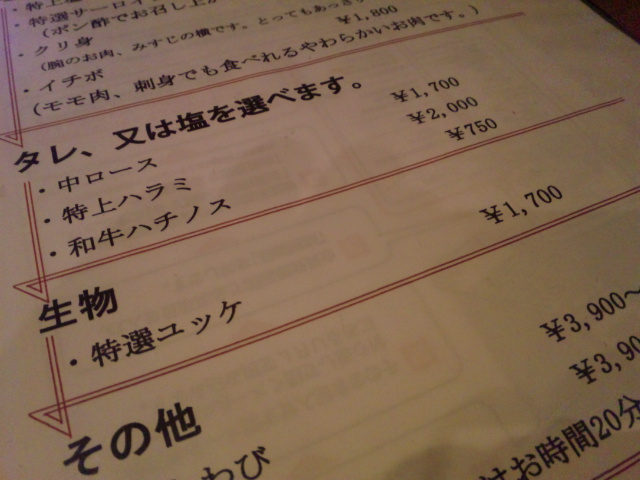 ・特選サーロイ
(ポン酢でお召し上が
・クリ身 ¥1,800
(腕のお肉、みすじの横です。とってもあっさ
・イチボ
(モモ肉、刺身でも食べれるやわらかいお肉です。)
タレ、又は塩を選べます。
・中ロース ¥1,700
・特上ハラミ ¥2,000
・和牛ハチノス ¥750
生物
・特選ユッケ ¥1,700
その他
わび ¥3,900～
¥3,90
お時間20分